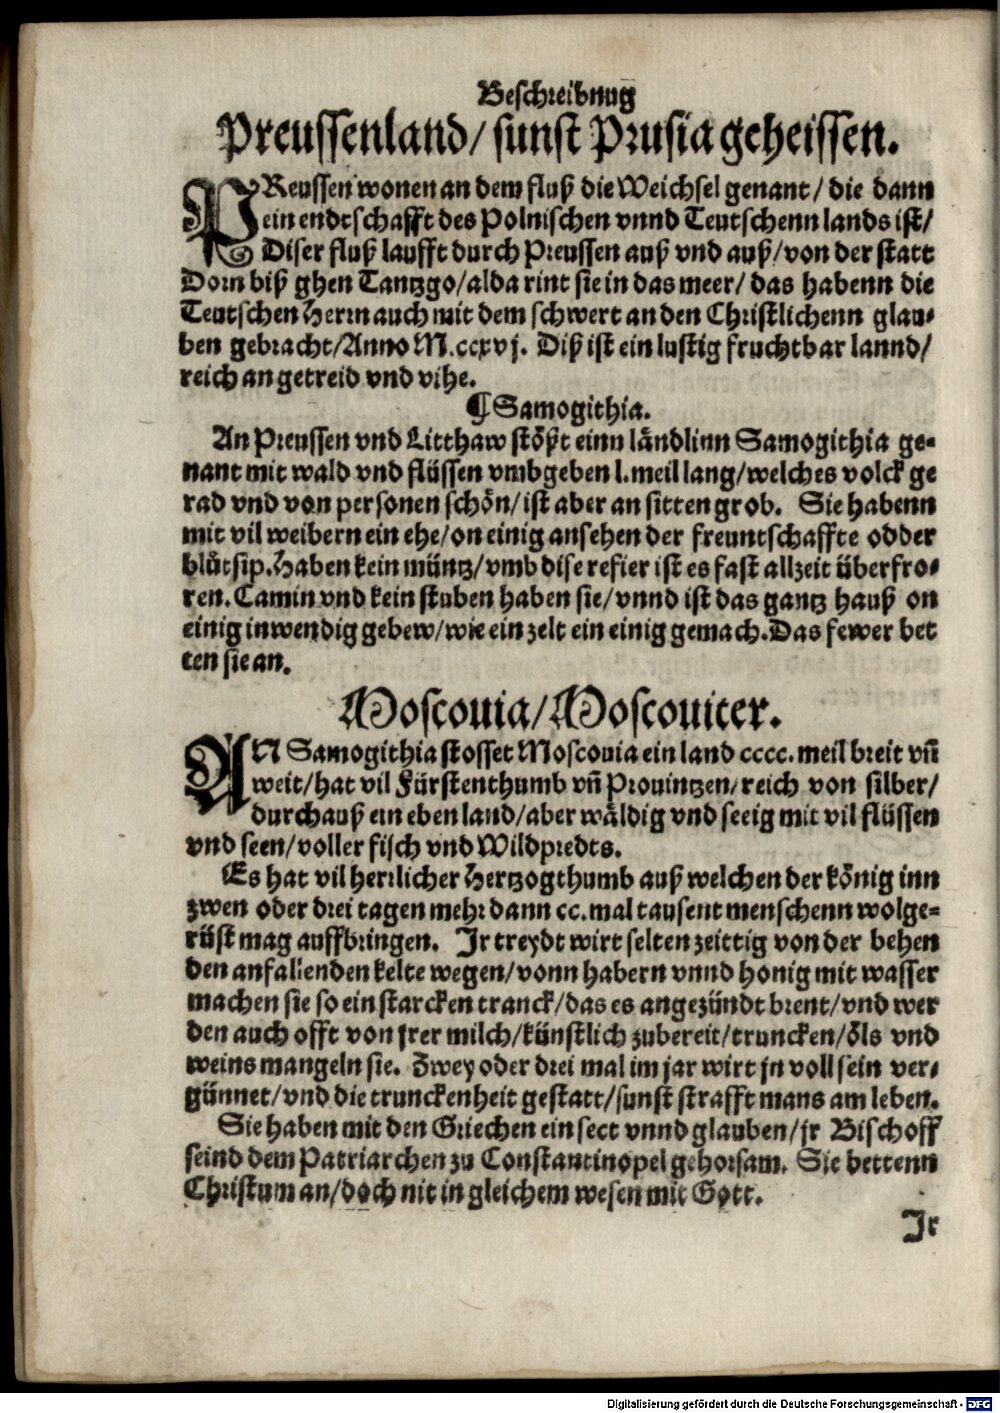 Beschreibnug
Preussenland/ sunst Prusia geheissen.
PReussen wonen an dem fluß die Weichsel genant/ die dann
ein endtschafft des Polnischen vnnd Teutschenn lands ist/
Diser fluß laufft durch Preussen auß vnd auß/ von der statt
Dorn biß ghen Tantzgo/ alda rint sie in das meer/ das habenn die
Teutschen Herrn auch mit dem schwert an den Christlichenn glau-
ben gebracht/ Anno M.ccxvj. Diß ist ein lustig fruchtbar lannd/
reich an getreid vnd vihe.
¶ Samogithia.
An Preussen vnd Litthaw stößt einn ländlinn Samogithia ge-
nant mit wald vnd flüssen vmbgeben l. meil lang/ welches volck ge
rad vnd von personen schön/ ist aber an sitten grob. Sie habenn
mit vil weibern ein ehe/ on einig ansehen der freuntschaffte odder
blůtsip. Haben kein müntz/ vmb dise refier ist es fast allzeit überfro-
ren. Camin vnd kein stuben haben sie/ vnnd ist das gantz hauß on
einig inwendig gebew/ wie ein zelt ein einig gemach. Das fewer bet
ten sie an.
Moscouia/ Moscouiter.
AN Samogithia stosset Moscouia ein land cccc. meil breit vñ
weit/ hat vil Fürstenthumb vñ Prouintzen/ reich von silber/
durchauß ein eben land/ aber wäldig vnd seeig mit vil flüssen
vnd seen/ voller fisch vnd Wildpredts.
Es hat vil herrlicher Hertzogthumb auß welchen der könig inn
zwen oder drei tagen mehr dann cc. mal tausent menschenn wolge-
rüst mag auffbringen. Ir treydt wirt selten zeittig von der behen
den anfallenden kelte wegen/ vonn habern vnnd honig mit wasser
machen sie so ein starcken tranck/ das es angezündt brent/ vnd wer
den auch offt von jrer milch/ künstlich zubereit/ truncken/ öls vnd
weins mangeln sie. Zwey oder drei mal im jar wirt jn voll sein ver-
günnet/ vnd die trunckenheit gestatt/ sunst strafft mans am leben.
Sie haben mit den Griechen ein sect vnnd glauben/ jr Bischoff
seind dem Patriarchen zu Constantinopel gehorsam. Sie bettenn
Christum an/ doch nit in gleichem wesen mit Gott.
Ir
Digitalisierung gefördert durch die Deutsche Forschungsgemeinschaft - DFG